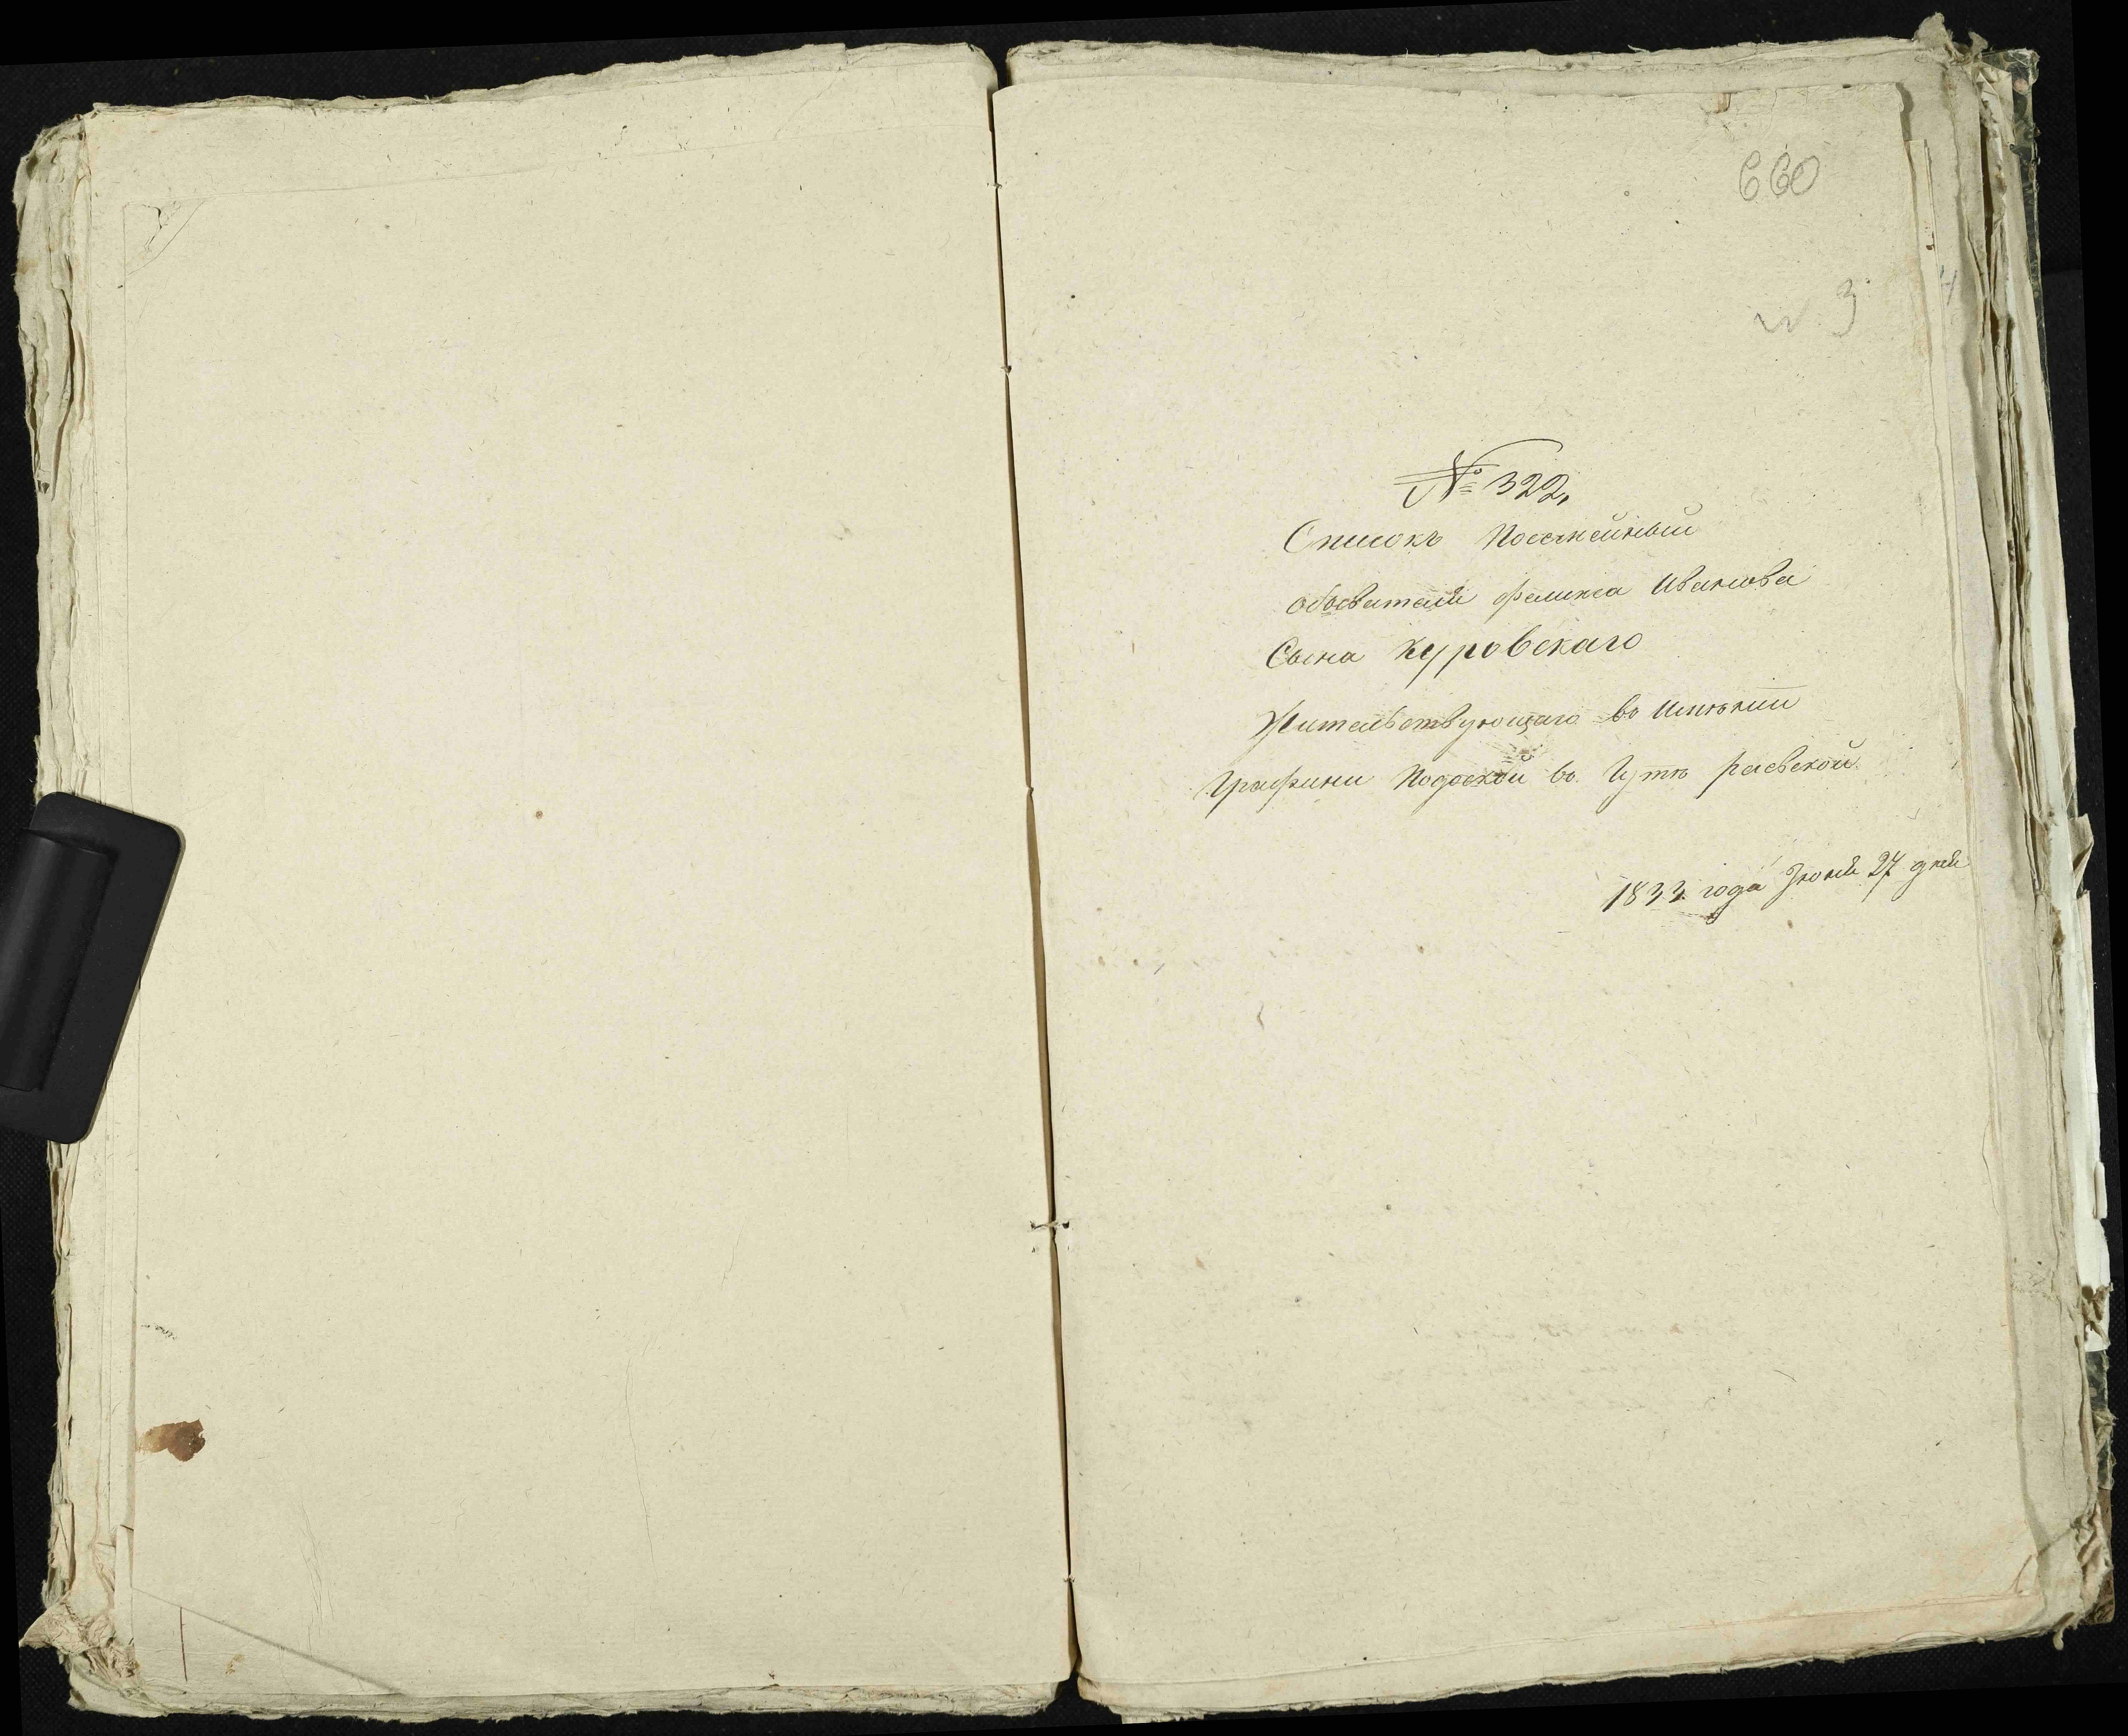 660
№ 3
№ 322,
Списокъ Посемейный
обывателя Феликса Иванова
Сына Куровскаго
Жительствующаго во Имѣнии
Графини Подоской во Гутѣ раевской
1833 года Июня 27 дня